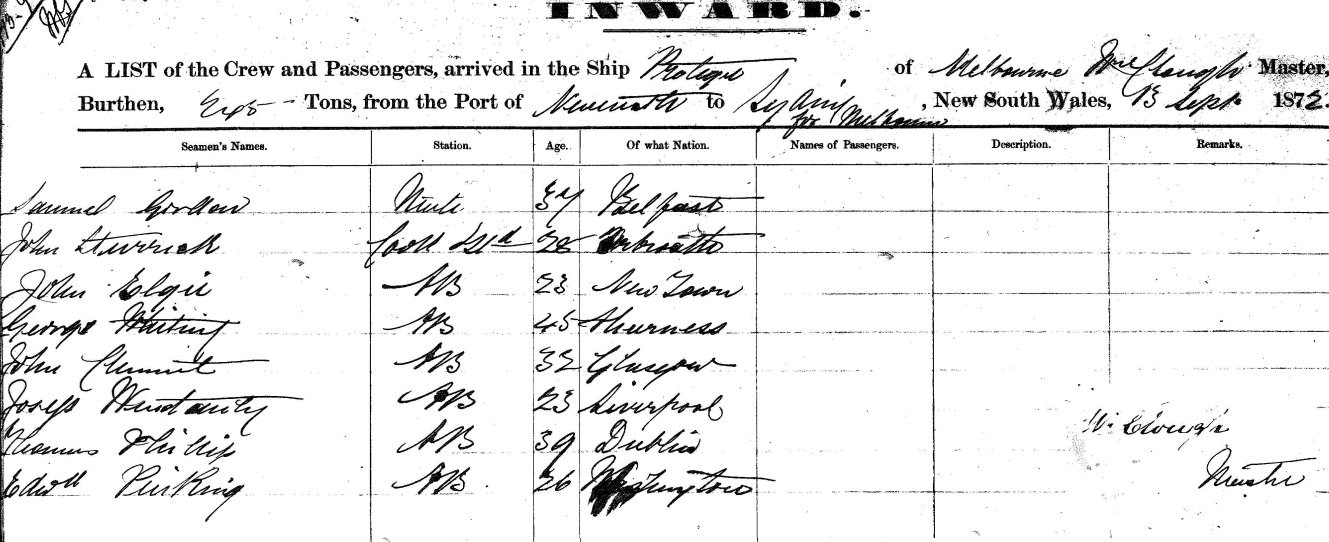 INWARD.
A LIST of the Crew and Passengers, arrived in the Ship of Melbourne Wm Clough Master,
Burthen, Tons, from the Port of to Sydney, New South Wales, 13 Sept. 1872.
for Melbourne
Seamen's Names. Station. Age. Of what Nation. Names of Passengers. Description. Remarks.
Samuel Gordon Mate 37 Belfast
John Sterrick Cook & Std 28 Arbroath
John Elgie AB 23 New Town
George Whiting AB 45 Sheerness
John Clement AB 32 Glasgow
Joseph AB 23 Liverpool
Thomas Phillip AB 39 Dublin
W. Clough
Edwd AB 26
Master